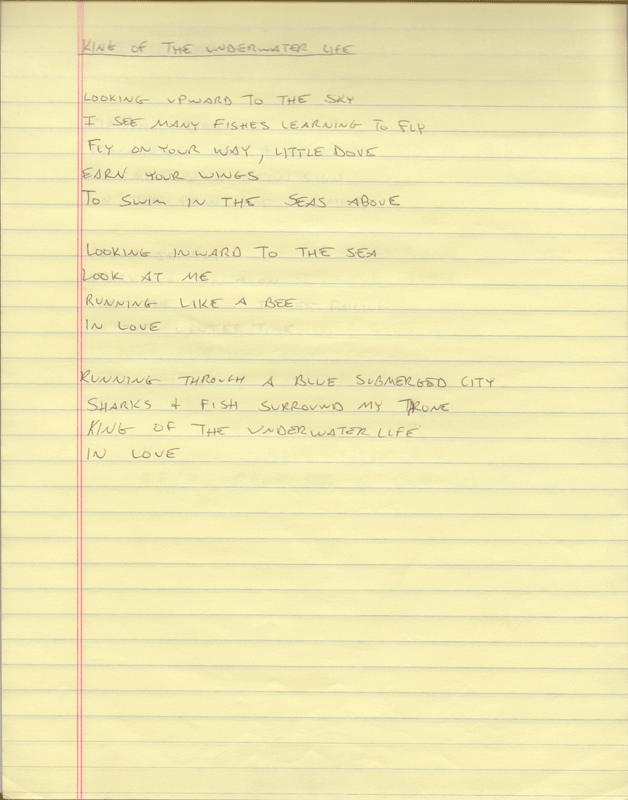 KING OF THE UNDERWATER LIFE
LOOKING UPWARD TO THE SKY
I SEE MANY FISHES LEARNING TO FLY
FLY ON YOUR WAY, LITTLE DOVE
EARN YOUR WINGS
TO SWIM IN THE SEAS ABOVE
LOOKING INWARD TO THE SEA
LOOK AT ME
RUNNING LIKE A BEE
IN LOVE
RUNNING THROUGH A BLUE SUBMERGED CITY
SHARKS + FISH SURROUND MY THRONE
KING OF THE UNDERWATER LIFE
IN LOVE